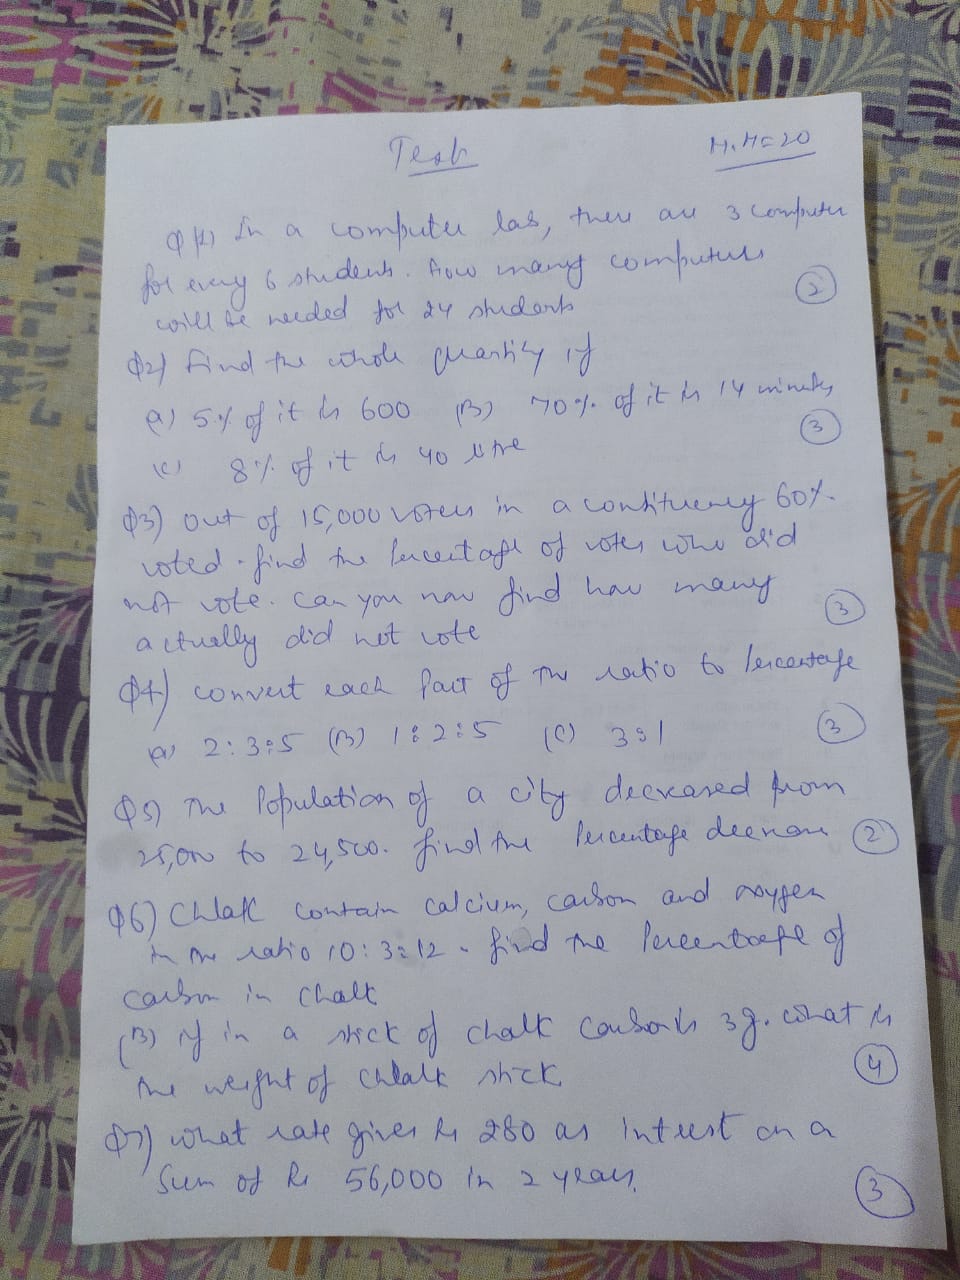 Test
M.M=20
Q(1) In a computer lab, there are 3 computer
for every 6 students. How many computers
will be needed for 24 students
(2)
Q2) Find the whole quantity if
(a) 5% of it is 600 (B) 70% of it is 14 minutes
(3)
(c) 8% of it is 40 litre
Q3) Out of 15,000 voters in a constituency 60%
voted. find the percentage of voters who did
not vote. Can you now find how many
actually did not vote
(3)
Q4) convert each Part of the ratio to percentage
(a) 2:3:5 (B) 1:2:5 (C) 3:1
(3)
Q5) The Population of a city decreased from
25,000 to 24,500. find the Percentage decrease
(2)
Q6) Chlak contain calcium, carbon and oxygen
in the ratio 10:3:12. find the Percentage of
carbon in chalk
(B) If in a stick of chalk carbon is 3g. what is
the weight of chalk stick
(4)
Q7) what rate gives Rs 280 as intrest on a
Sum of Rs 56,000 in 2 years.
(3)